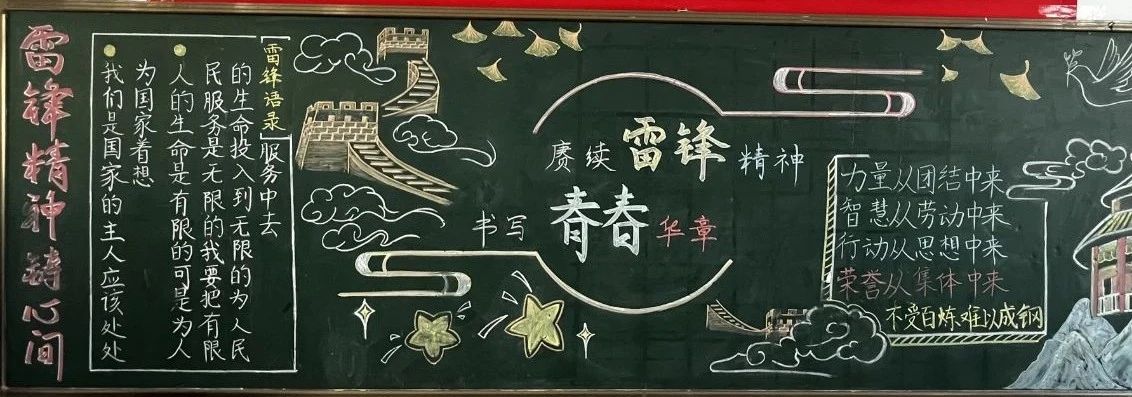 雷锋精神铸心间
[雷锋语录]
我们是国家的主人应该处处
为国家着想
人的生命是有限的可是为人
民服务是无限的我要把有限
的生命投入到无限的为人民
服务中去
赓续雷锋精神
书写青春华章
力量从团结中来
智慧从劳动中来
行动从思想中来
荣誉从集体中来
不受百炼难以成钢